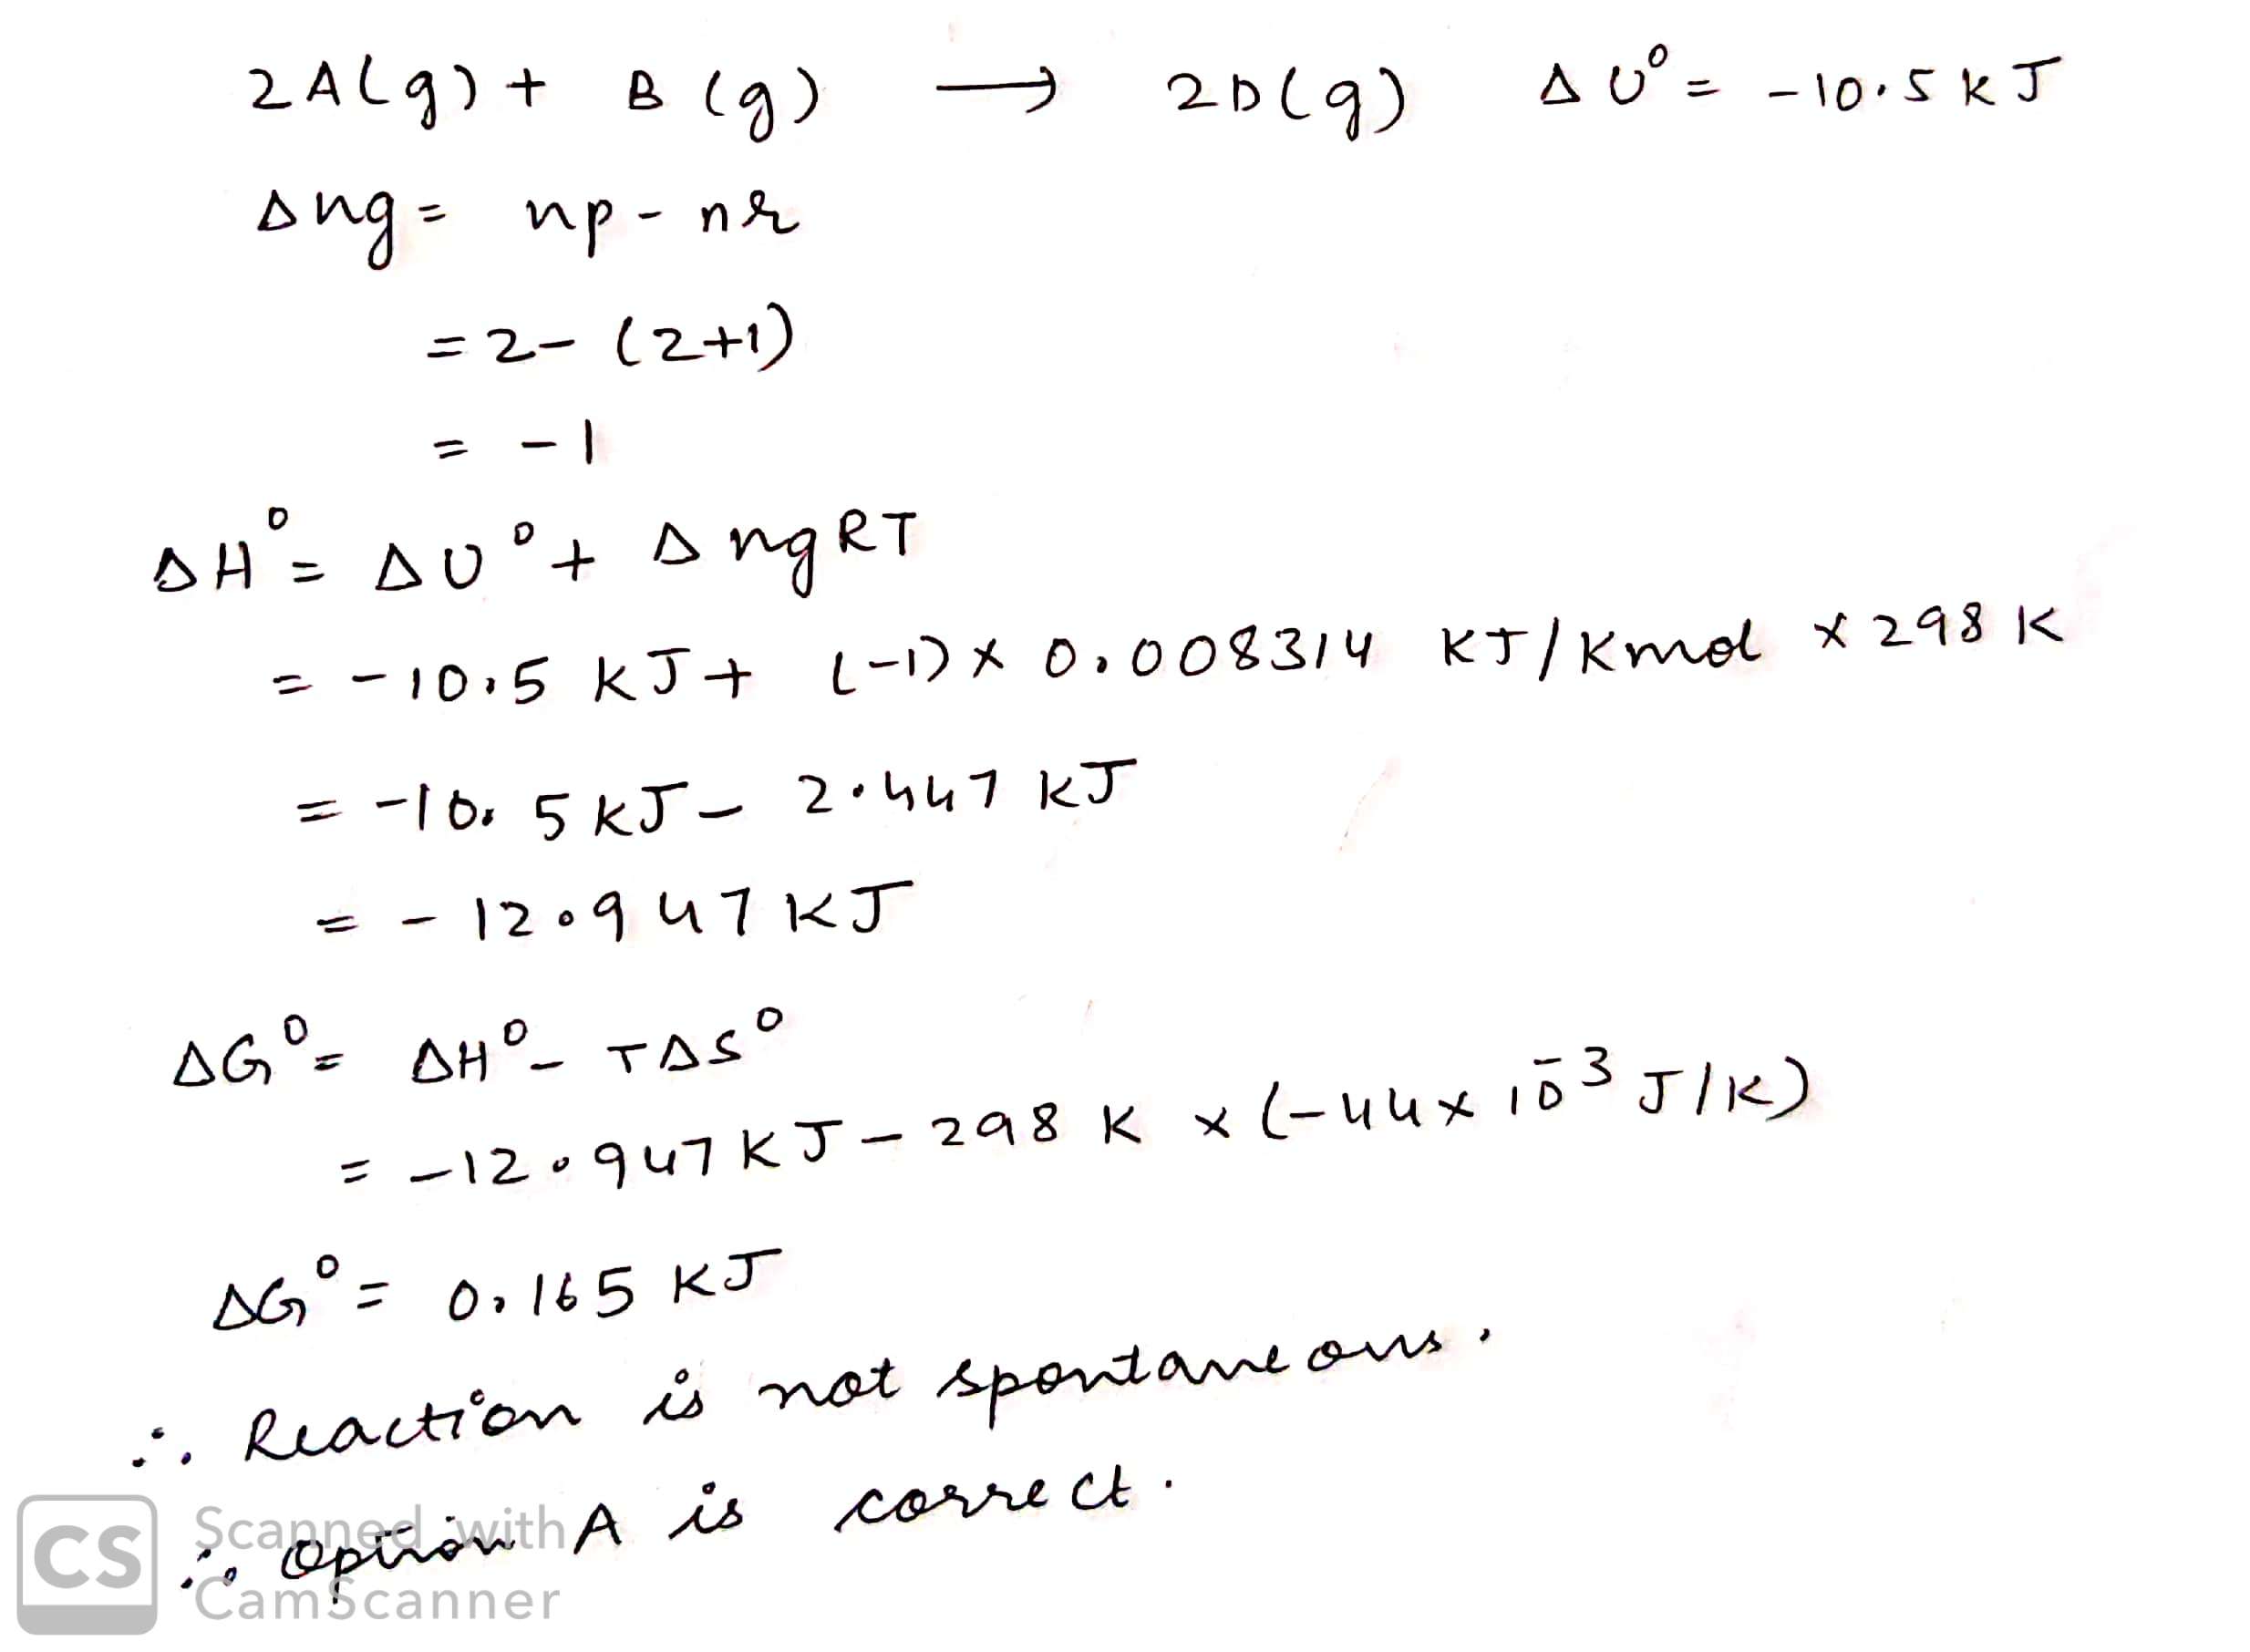 2A(g) + B(g) → 2D(g) ΔU° = -10.5 kJ
Δng = np - nr
= 2 - (2+1)
= -1
ΔH° = ΔU° + ΔngRT
= -10.5 kJ + (-1) × 0.008314 KJ/Kmol × 298 K
= -10.5 kJ - 2.447 kJ
= -12.947 KJ
ΔG° = ΔH° - TΔS°
= -12.947 KJ - 298 K × (-44 × 10⁻³ J/K)
ΔG° = 0.165 KJ
∴ Reaction is not spontaneous.
∴ Option A is correct.
CS Scanned with
CamScanner